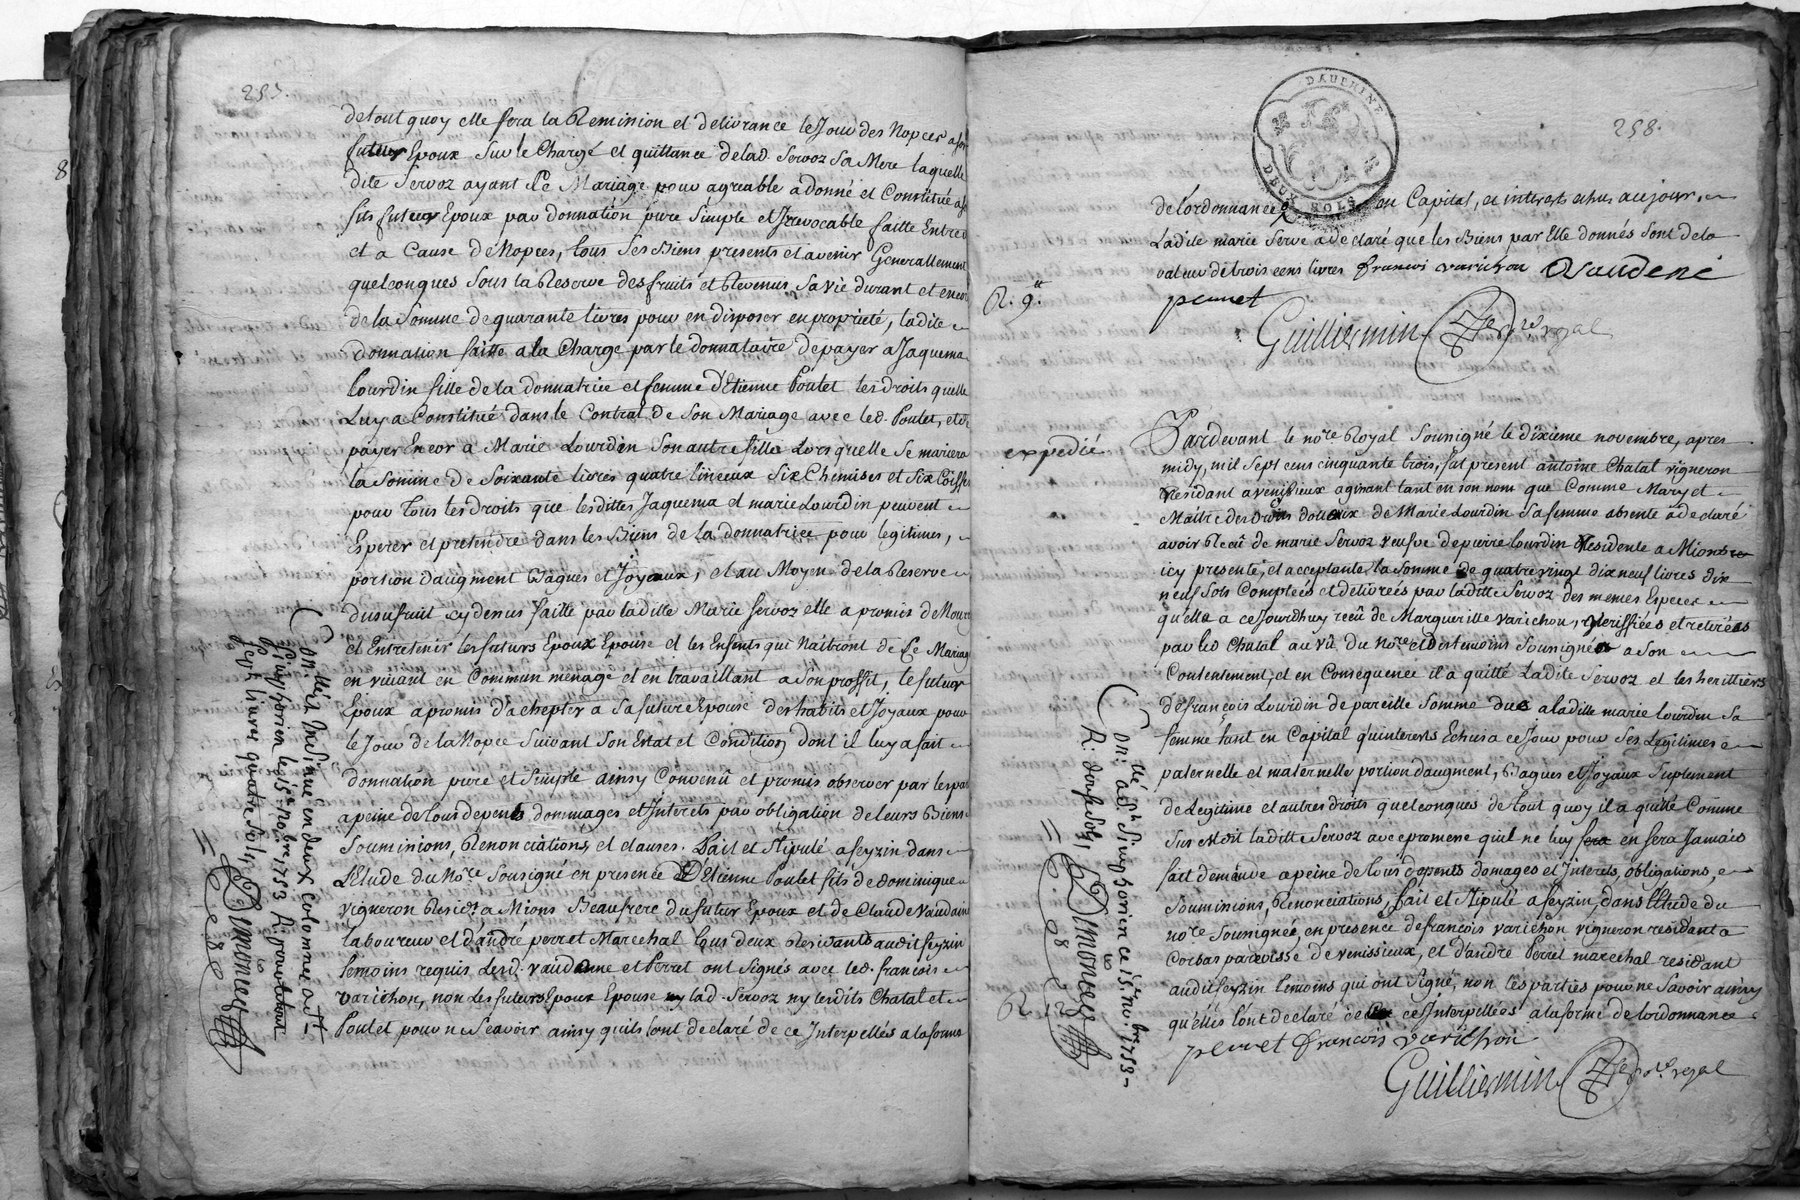 253.
de tout quoy elle fera la Remission et delivrance le Jour des Nopces a son
futeur Epoux sur le Chargé et quittance de lad. Servoz sa Mere laquelle
dite Servoz ayant Le Mariage pour agreable a donné et Constitué a
fils futeur Epoux par donnation pure simple et Irrevocable faitte Entre
et a Cause de Nopces, tous ses Biens presents et avenir Generallement
quelconques sous la Reserve des fruits et Revenus sa vie durant et encor
de la somme de quarante livres pour en disposer en proprieté, ladite
donnation faitte a la Charge par le donnataire de payer a Jaquema
Lourdin fille de la donnatrice et femme d'Etienne Poulet les droits quelle
Luy a Constitué dans le Contrat de son Mariage avec led. Poulet, et de
payer Encor a Marie Lourdin son autre fille Lors quelle se mariera
la somme de soixante livres quatre linceux six Chemises et six Coiffes
pour tous les droits que lesdittes Jaquema et marie Lourdin peuvent
Esperer et pretendre dans les Biens de la donnatrice pour legitimes,
portion daugment Bagues et Joyaux, et au Moyen de la Reserve
dusufruit cy dessus faitte par laditte Marie Servoz elle a promis de Nourir
et Entretenir les futurs Epoux Epouse et les Enfants qui Naitront de Le Mariage
en vivant en Commun menage et en travaillant a son proffit, le futur
Epoux a promis d'achepter a sa future Epouse des habits et Joyaux pour
le Jour de la Nopce suivant son Estat et Condition dont il luy a fait
donnation pure et simple ainsy Convenû et promis observer par les par
a peine de tous depents dommages et Interets par obligation de leurs Biens
soumissions, Renonciations et clauses. Fait et stipulé a feyzin dans
L'Etude du Nore sousigné en presence D'Etienne Poulet fils de dominique
vigneron Resident a Mions Beaufrere du futur Epoux et de Claude Vaudaine
laboureur et d'andré perret Marechal tous deux Residants audit feyzin
temoins requis Lesd. vaudanne et Perret ont signés avec led. francois
varichon, non Les futurs Epoux Epouse ny lad. Servoz ny lesdits Chatal et
Poulet pour ne sçavoir ainsy quils l'ont declaré de ce Interpellés a la forme
Con.llé et Insinué en deux Colonnes a St
Siuphorien le 15e. nobre. 1753 R. pour le tout
seize livre quatre sols
Dimoncey
258.
DAUCHINE
DEUX SOLS
de lordonnance en Capital, et interest echus au jour.
Ladite marie Serve a declaré que les Biens par Elle donnés sont de la
valeur de trois cens livres francois varichon Vaudené
perret
R. 9tt.
Guilliermin Nore royal
expedié
Pardevant le nore Royal sousigné le dixieme novembre, apres
midy, mil sept cens cinquante trois, fut present antoine Chatal vigneron
residant a venissieux agissant tant en son nom que Comme Mary et
Maitre des droits dotaux de Marie Lourdin sa femme absente a declaré
avoir Recû de marie Servoz veufve de pierre Lourdin Residente a Mions
icy presente, et acceptante la somme de quatre vingt dix neuf livres dix
neuf sols Comptées et delivrées par laditte Servoz des memes Especes
qu'elle a ce Jourdhuy recû de Marguerite Varichon, verissiées et retirées
par led Chatal au vû du nore et des temoins sousignés a son
Contentement, et en Consequence il a quitté Ladite Servoz et les herittiers
de françois Lourdin de pareille somme due a laditte marie Lourdin sa
femme tant en Capital qu'interests Echus a ce Jour pour ses Legitimes
paternelle et maternelle portion daugment, Bagues et Joyaux suplement
de Legitime et autres droits quelconques de tout quoy il a quitté Comme
sus est dit laditte Servoz avec promesse quil ne luy en sera Jamais
fait demande a peine de tous depents domages et Interets, obligations,
soumissions, Renonciations, fait et stipulé a feyzin, dans l'Etude du
nore sousignée en presence de francois varichon vigneron residant a
Corbas paroisse de venissieux, et d'andré Perret marechal residant
audit feyzin temoins qui ont signé, non les parties pour ne sçavoir ainsy
qu'elles l'ont declaré de ce Interpellées a la forme de lordonnance
perret francois varichon
Guilliermin Nore royal
Con.llé a St Siuphorien ce 15e. nobre. 1753
R. douse sols
Dimoncey
R. 12 s